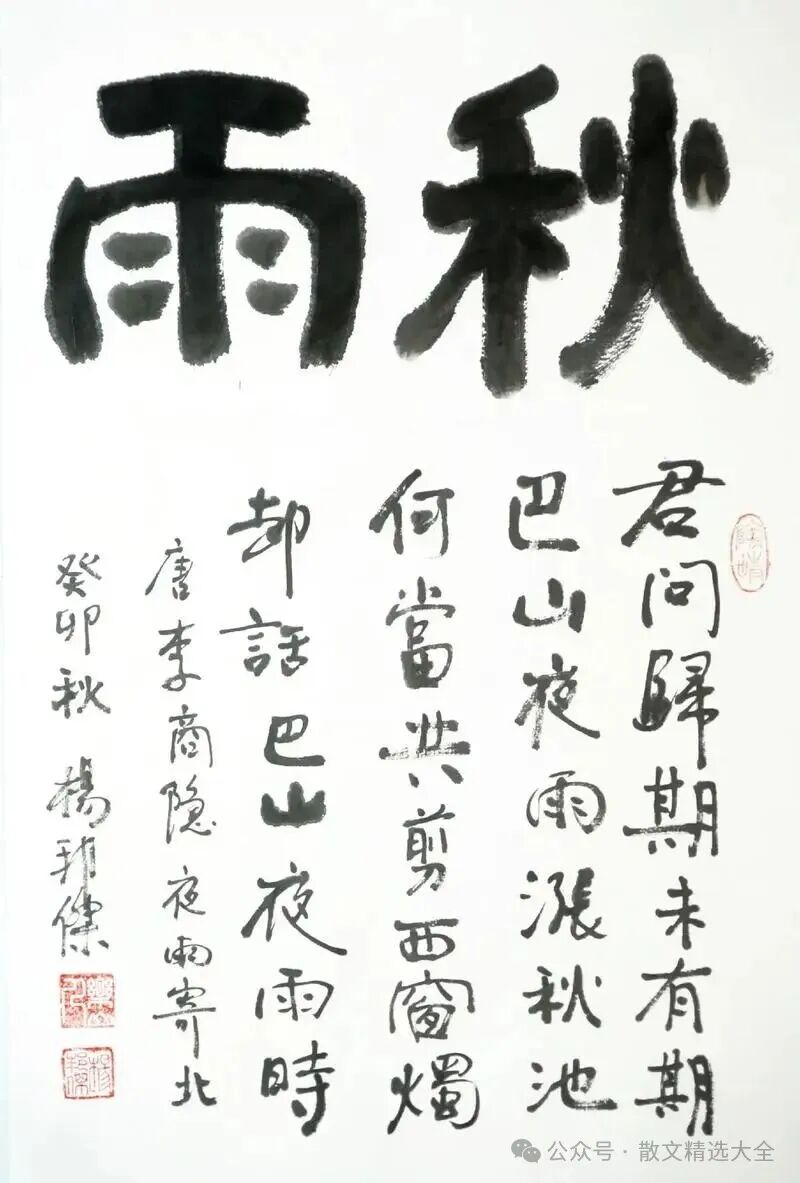 秋雨
君問歸期未有期
巴山夜雨漲秋池
何當共剪西窗燭
却話巴山夜雨時
唐李商隐夜雨寄北
癸卯秋 楊邦傑
公众号·散文精选大全